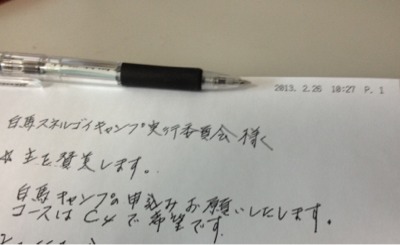 2013. 2.26 10:27 P. 1
白馬スネルゴイキャンプ実行委員会 様く
主を賛美します。
白馬キャンプの申込みお願いいたします。
コースは C4 で希望です。